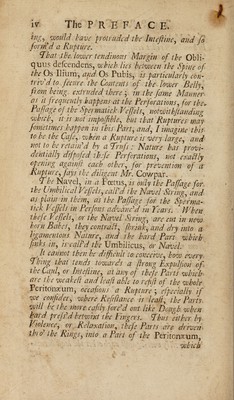 iv The PREFACE.
ing, would have protruded the Intestine, and so
form'd a Rupture.
That the lower tendinous Margin of the Obli-
quus descendens, which lies between the Spine of
the Os Ilium, and Os Pubis, is particularly con-
triv'd to secure the Contents of the lower Belly,
from being extruded there; in the same Manner
as it frequently happens at the Perforations, for the
Passage of the Spermatick Vessels, notwithstanding
which, it is not impossible, but that Ruptures may
sometimes happen in this Part, and, I imagine this
to be the Case, when a Rupture is very large, and
not to be retain'd by a Truss: Nature has provi-
dentially disposed these Perforations, not exactly
opening against each other, for prevention of a
Rupture, says the diligent Mr. Cowpar.
The Navel, in a Fœtus, is only the Passage for
the Umbilical Vessels, call'd the Navel String, and
as plain in them, as the Passage for the Sperma-
tick Vessels in Persons advanc'd in Years. When
these Vessels, or the Navel String, are cut in new
born Babes, they contract, shrink, and dry into a
ligamentous Nature, and the hard Part which
sinks in, is call'd the Umbilicus, or Navel.
It cannot then be difficult to conceive, how every
Thing that tends towards a strong Expulsion of
the Caul, or Intestine, at any of these Parts which
are the weakest and least able to resist of the whole
Peritonæum, occasions a Rupture; especially if
we consider, where Resistance is least, the Parts
will be the more easily forc'd out like Dough when
hard press'd betwixt the Fingers. Thus either by
Violence, or Relaxation, these Parts are driven
thro' the Rings, into a Part of the Peritonæum,
which